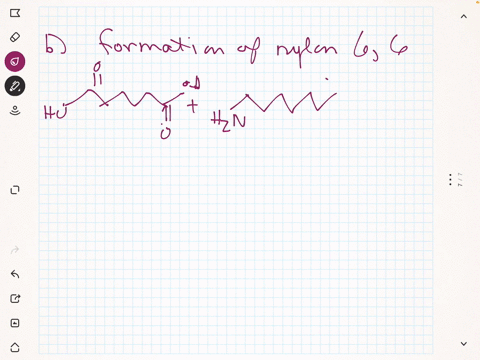 b) formation of nylon 6, 6
O
HO
OH
+
H₂N
O
7 / 7